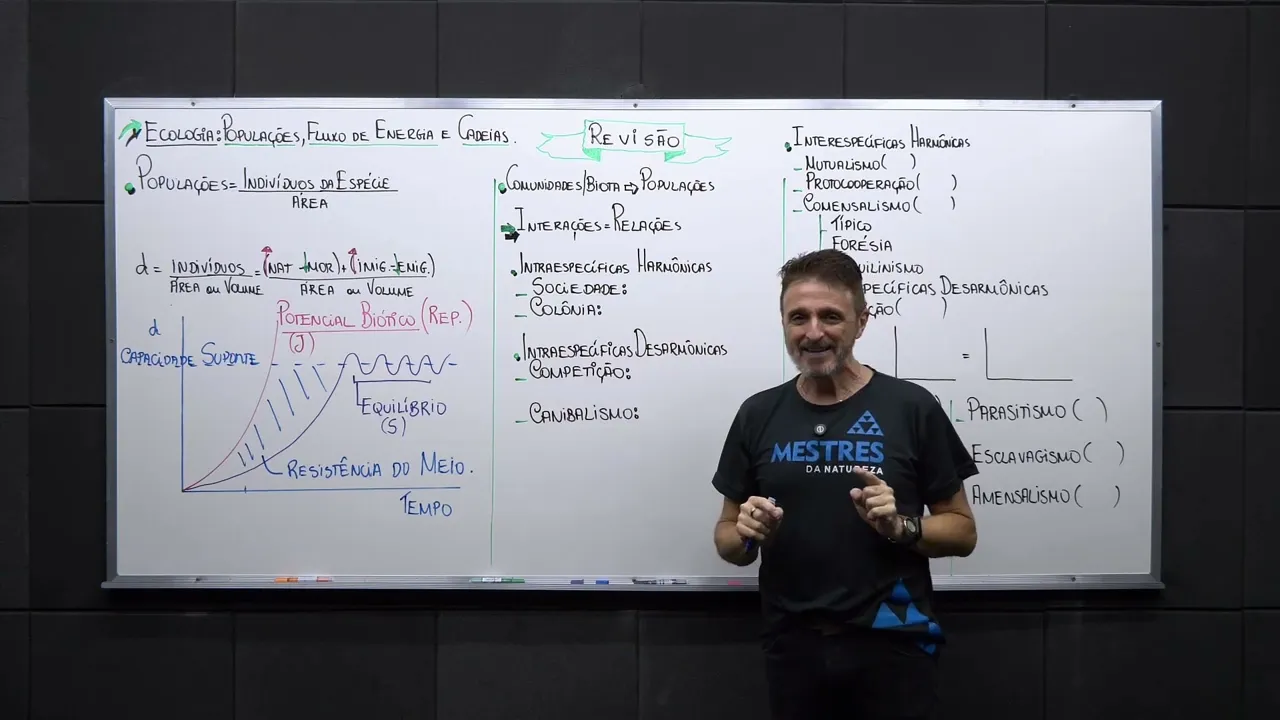 Ecologia: Populações, Fluxo de Energia e Cadeias.
Revisão
Populações = Indivíduos da Espécie
Área
d = Indivíduos = (Nat - Mor) + (Imig. - Emig.)
Área ou Volume Área ou Volume
d
Potencial Biótico (Rep.)
(J)
Capacidade Suporte
Equilíbrio
(S)
Resistência do Meio.
Tempo
Comunidades/Biota ⇨ Populações
Interações = Relações
Intraespecíficas Harmônicas
- Sociedade:
- Colônia:
Intraespecíficas Desarmônicas
- Competição:
- Canibalismo:
Interespecíficas Harmônicas
- Mutualismo ( )
- Protocooperação ( )
- Comensalismo ( )
Típico
Forésia
quilinismo
specíficas Desarmônicas
ção ( )
=
Parasitismo ( )
Esclavagismo ( )
Amensalismo ( )
MESTRES
DA NATUREZA